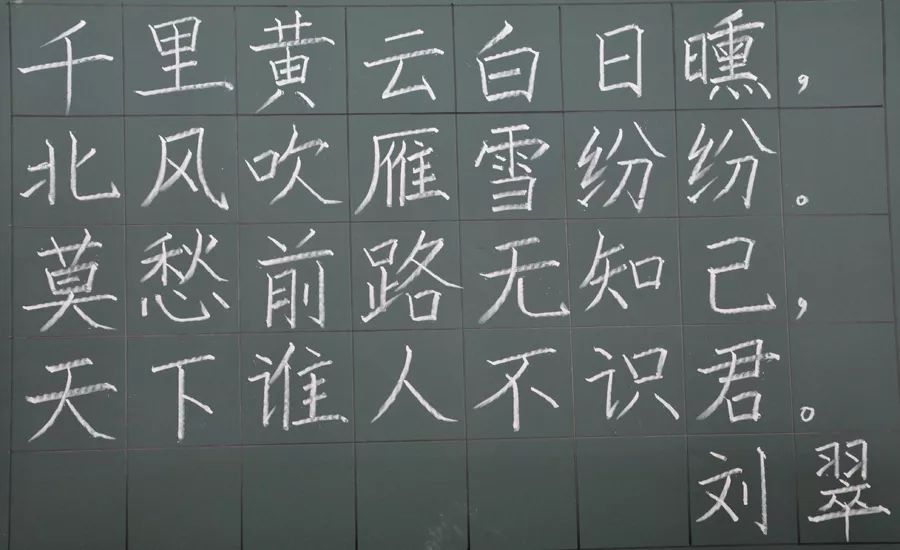 千里黄云白日曛，
北风吹雁雪纷纷。
莫愁前路无知己，
天下谁人不识君。
刘翠